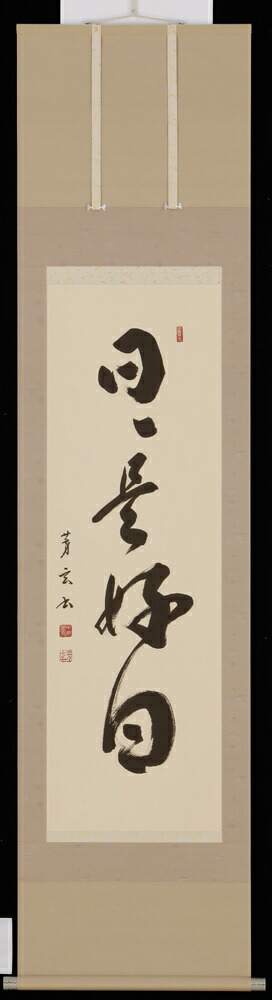 日々是好日
芳玄書